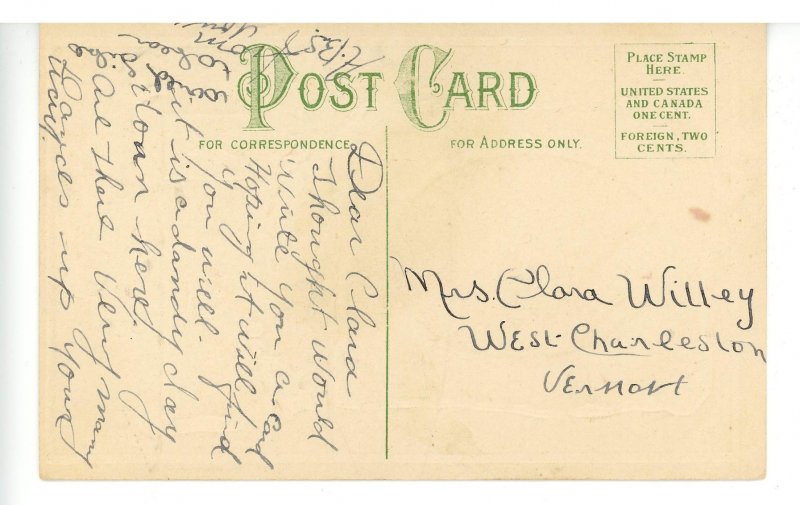 POST CARD
FOR CORRESPONDENCE
FOR ADDRESS ONLY.
PLACE STAMP
HERE.
UNITED STATES
AND CANADA
ONE CENT.
FOREIGN, TWO
CENTS.
Dear Clara
Thought would
write you a card
Hoping it will find
you well.
it is a dandy day
for here
Are there Very many
up your
Mrs. Clara Willey
West Charleston
Vermont